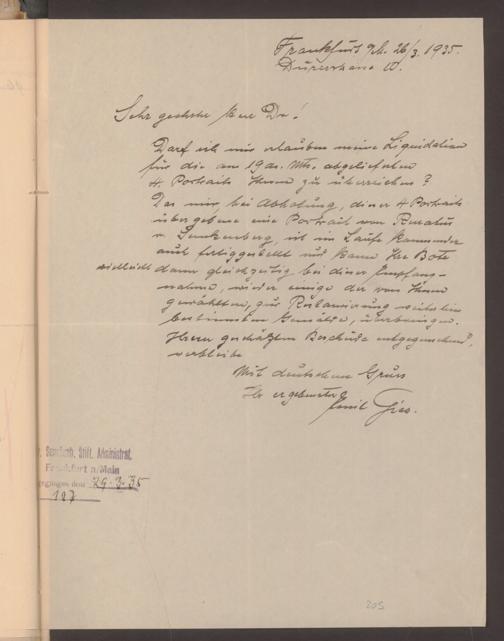 Frankfurt a/M. 26/3. 1935.
Dürerstrasse 10.
Sehr geehrter Herr Dr!
Darf ich mir erlauben meine Liquidation
für die am 19 ds. Mts. abgelieferten
4. Portraits Ihnen zu überreichen?
Das mir, bei Abholung, dieser 4 Portraits
übergebene eine Portrait von Renatus
v. Senckenberg, ist im Laufe kommender
auch fertiggestellt und kann Ihr Bote
vielleicht dann gleichzeitig bei dieser Empfang-
nahme, wieder einige der von Ihnen
gewählten, zur Restaurierung
bestimmten Gemälde, überbringen.
Ihrem geschätzten Bescheide entgegensehend,
verbleibe
Mit deutschem Gruss
Ihr ergebenster
Emil Gies.
Senckenb. Stift. Administrat.
Frankfurt a/Main
gegangen den 29.3.35
127
205